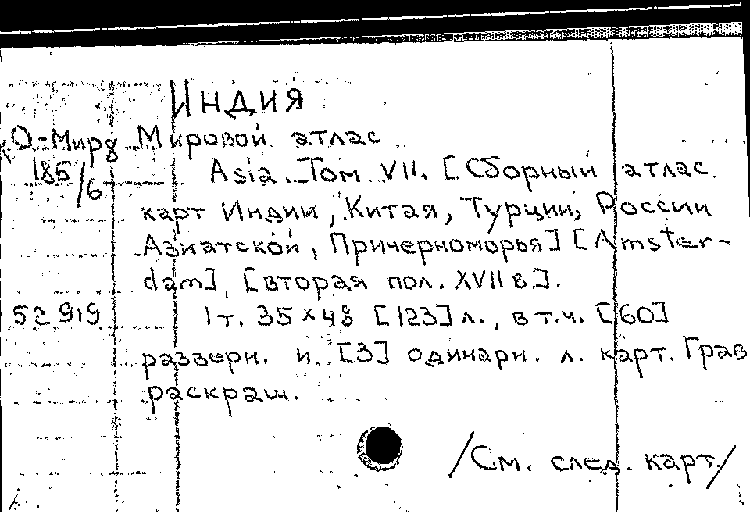 ИНДИЯ
О-Мир 8 Мировой атлас
185/6 Asia. Том VII. [Сборный атлас
карт Индии, Китая, Турции, России
Азиатской, Причерноморья] [Amster-
dam], [вторая пол. XVII в].
52 919 1 т. 35×48 [123] л., в т.ч. [60]
разверн. и [3] одинарн. л. карт. Грав
раскраш.
/См. след. карт/